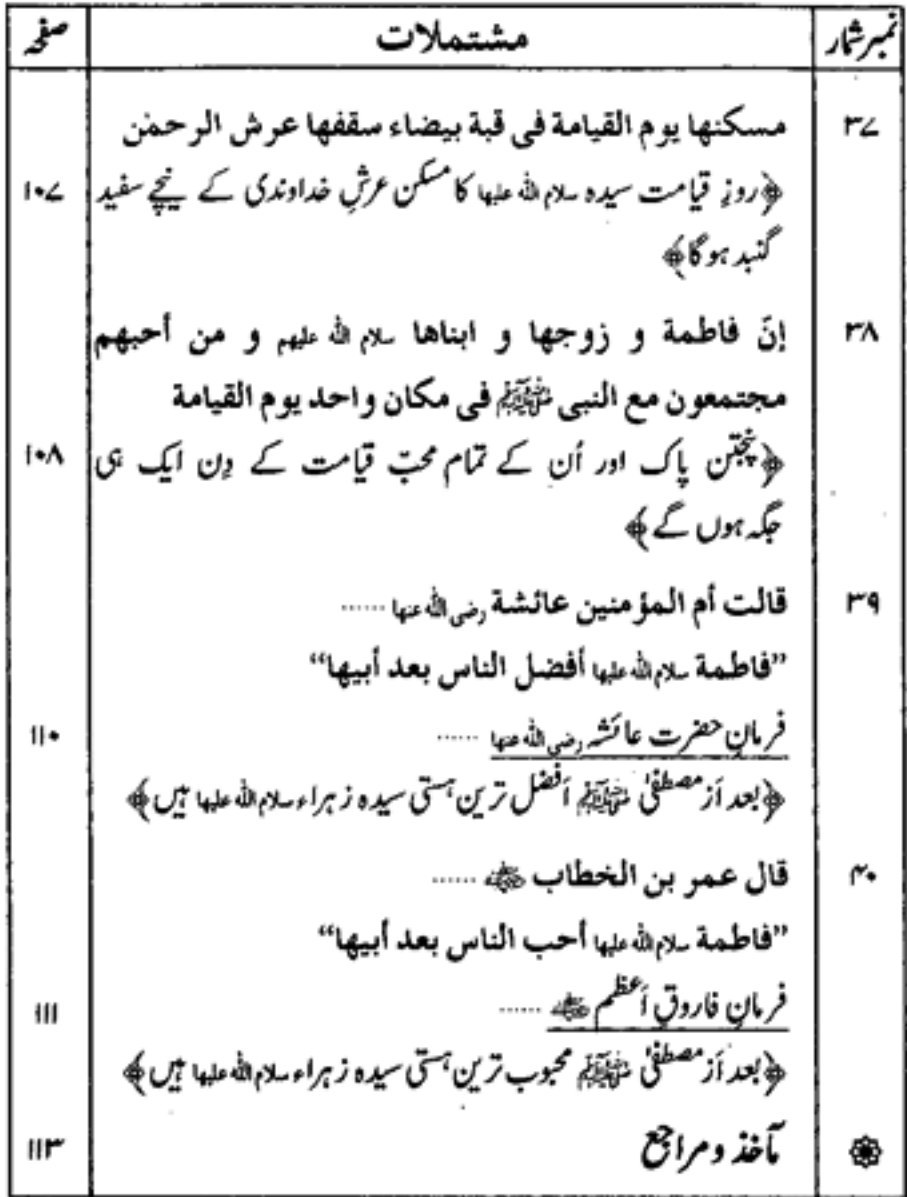 نمبر شمار مشتملات صفحہ
۳۷ مسكنها يوم القيامة فى قبة بيضاء سقفها عرش الرحمٰن
﴿روزِ قیامت سیدہ سلام اللہ علیہا کا مسکن عرشِ خداوندی کے نیچے سفید ۱۰۷
گنبد ہو گا﴾
۳۸ إنّ فاطمة و زوجها و ابناها سلام اللہ علیہم و من أحبهم
مجتمعون مع النبى ﷺ فى مكان واحد يوم القيامة
﴿پنجتن پاک اور اُن کے تمام محبّ قیامت کے دِن ایک ہی ۱۰۸
جگہ ہوں گے﴾
۳۹ قالت أم المؤمنين عائشة رضی اللہ عنہا ……
”فاطمة سلام اللہ علیہا أفضل الناس بعد أبيها“
فرمانِ حضرت عائشہ رضی اللہ عنہا …… ۱۱۰
﴿بعد اَز مصطفیٰ ﷺ اَفضل ترین ہستی سیدہ زہراء سلام اللہ علیہا ہیں﴾
۴۰ قال عمر بن الخطاب ؓ ……
”فاطمة سلام اللہ علیہا أحب الناس بعد أبيها“
فرمانِ فاروقِ اَعظم ؓ …… ۱۱۱
﴿بعد اَز مصطفیٰ ﷺ محبوب ترین ہستی سیدہ زہراء سلام اللہ علیہا ہیں﴾
مآخذ و مراجع ۱۱۳